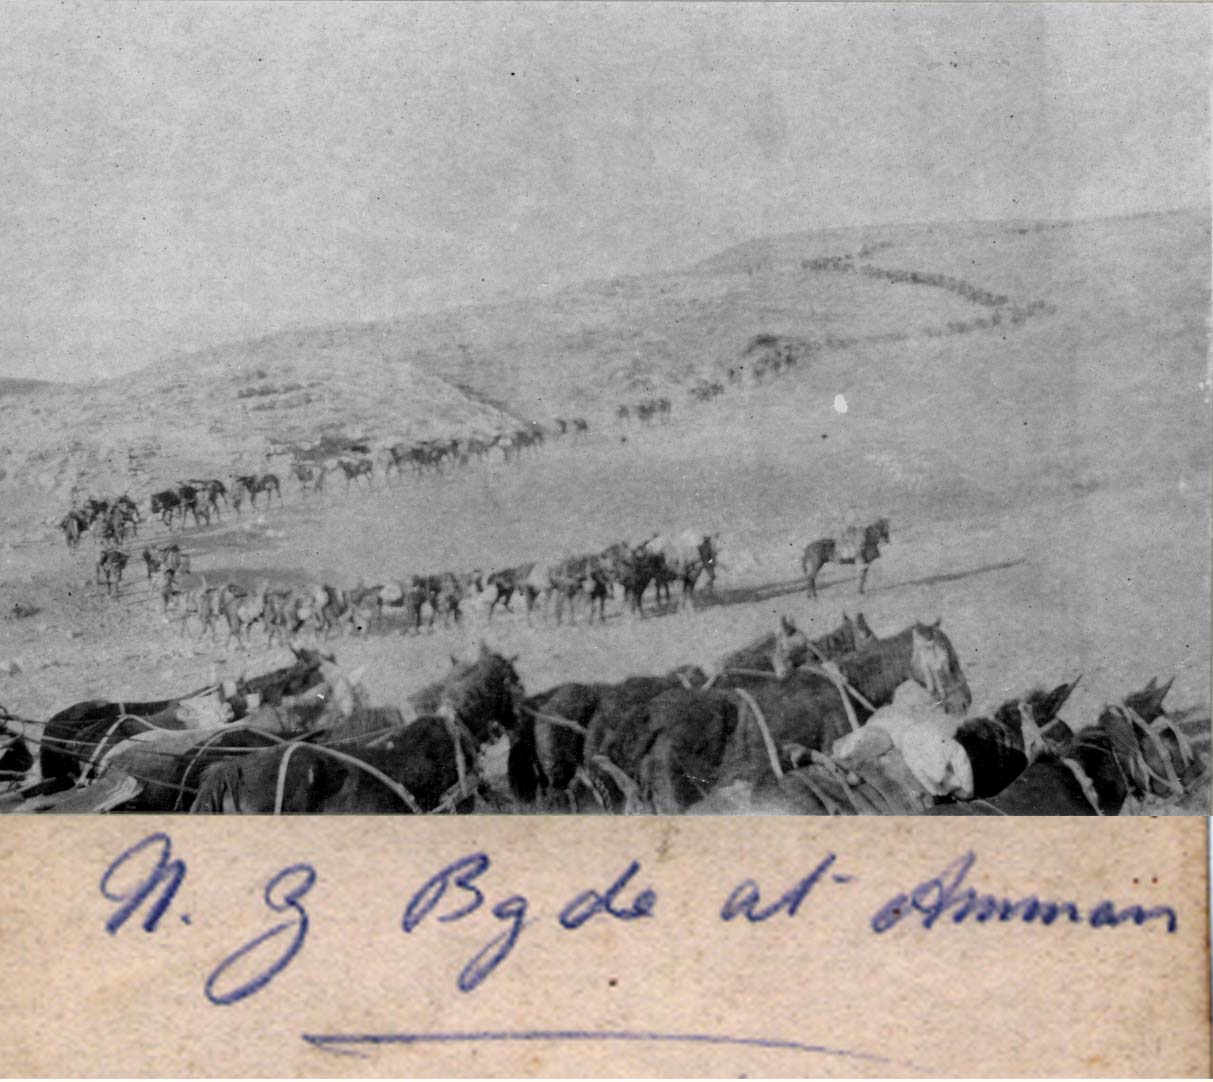 N. Z Bgde at Amman